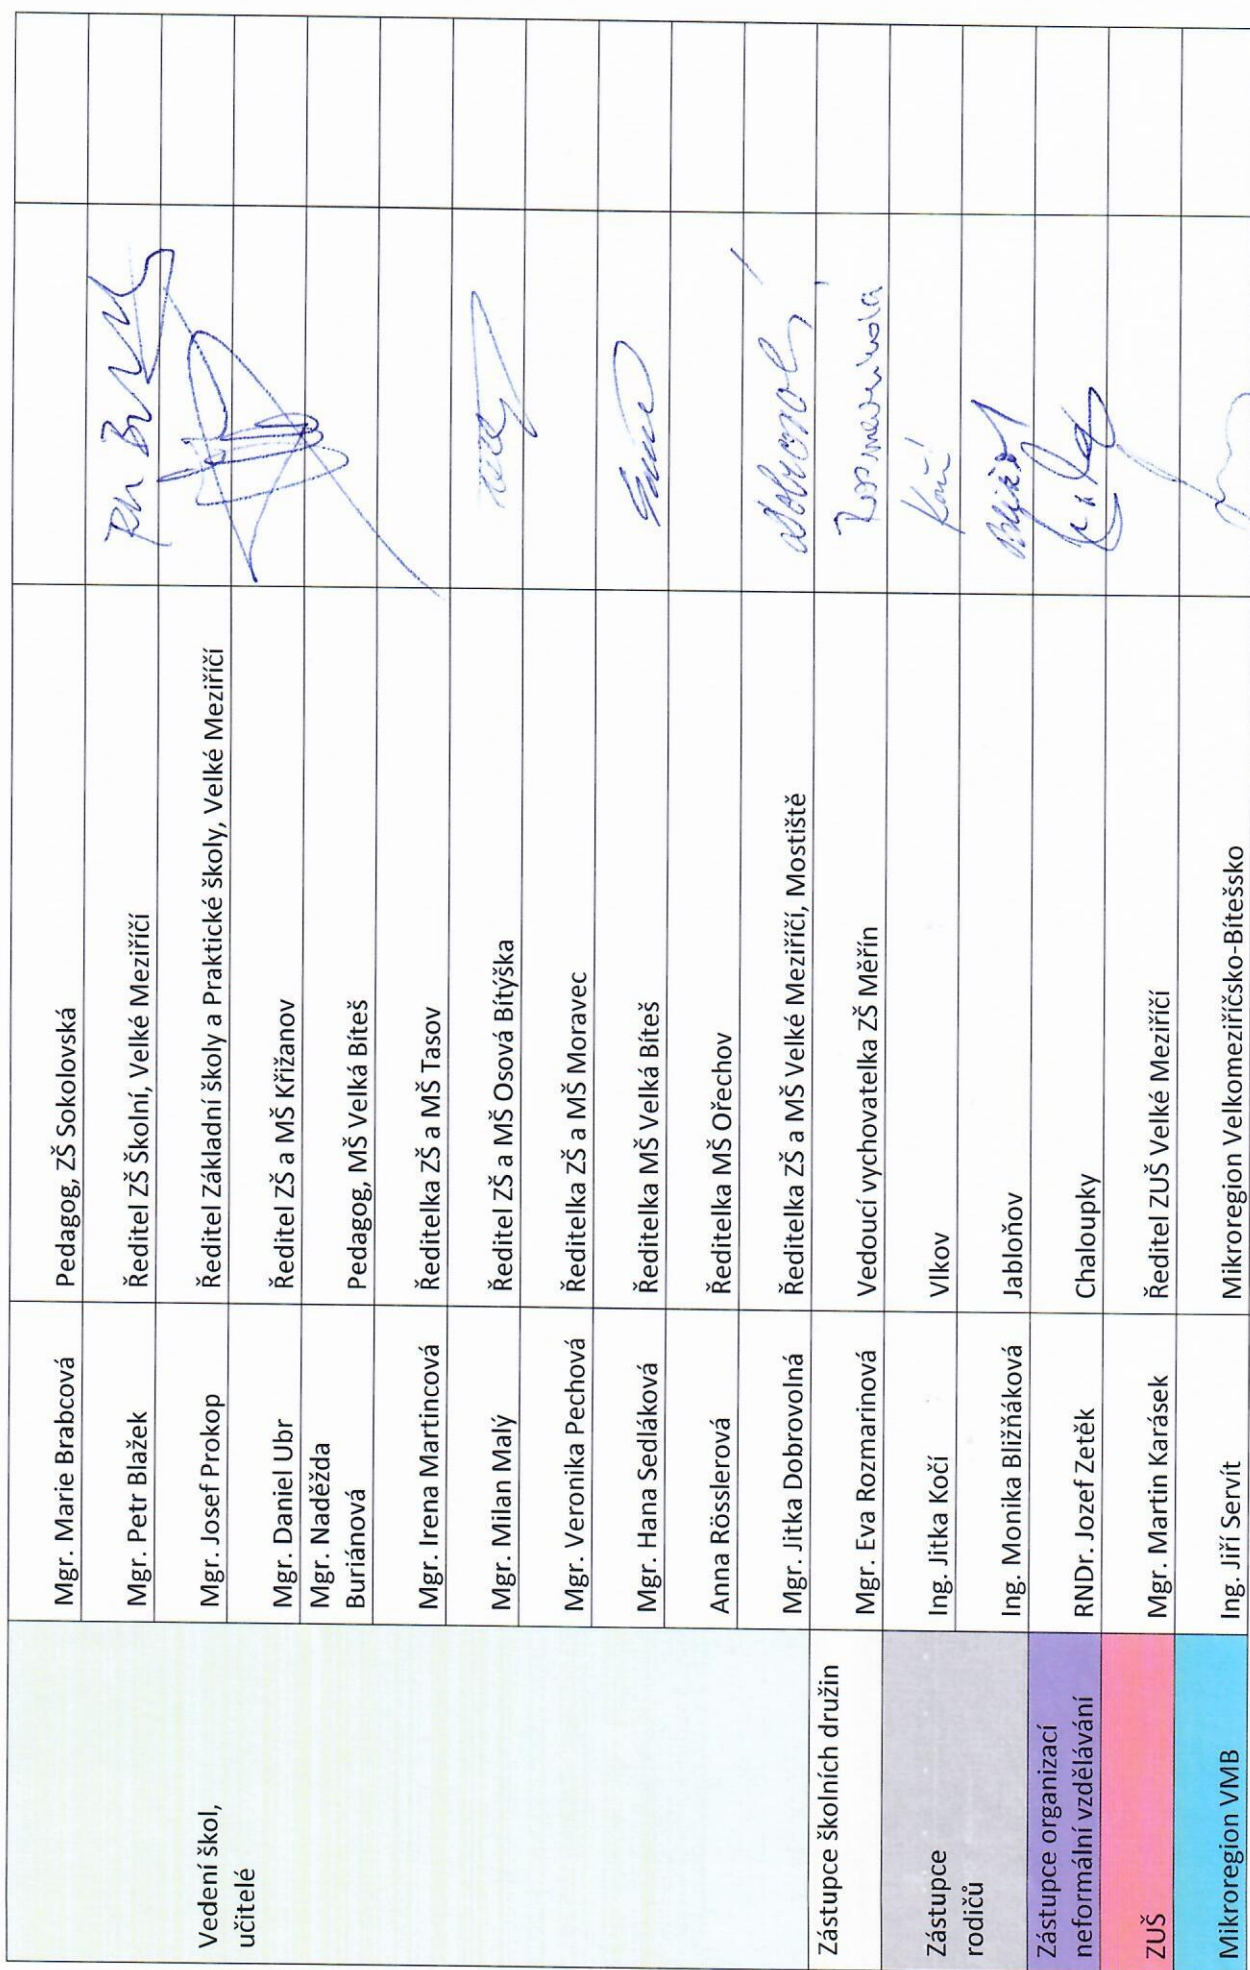 Vedení škol,
učitelé
Mgr. Marie Brabcová Pedagog, ZŠ Sokolovská
Mgr. Petr Blažek Ředitel ZŠ Školní, Velké Meziříčí
Mgr. Josef Prokop Ředitel Základní školy a Praktické školy, Velké Meziříčí
Mgr. Daniel Ubr Ředitel ZŠ a MŠ Křižanov
Mgr. Naděžda
Buriánová Pedagog, MŠ Velká Bíteš
Mgr. Irena Martincová Ředitelka ZŠ a MŠ Tasov
Mgr. Milan Malý Ředitel ZŠ a MŠ Osová Bítýška
Mgr. Veronika Pechová Ředitelka ZŠ a MŠ Moravec
Mgr. Hana Sedláková Ředitelka MŠ Velká Bíteš
Anna Rösslerová Ředitelka MŠ Ořechov
Mgr. Jitka Dobrovolná Ředitelka ZŠ a MŠ Velké Meziříčí, Mostiště
Zástupce školních družin Mgr. Eva Rozmarinová Vedoucí vychovatelka ZŠ Měřín
Zástupce
rodičů
Ing. Jitka Kočí Vlkov Kočí
Ing. Monika Bližňáková Jabloňov
Zástupce organizací
neformální vzdělávání RNDr. Jozef Zetěk Chaloupky
ZUŠ Mgr. Martin Karásek Ředitel ZUŠ Velké Meziříčí
Mikroregion VMB Ing. Jiří Servít Mikroregion Velkomeziříčsko-Bítešsko